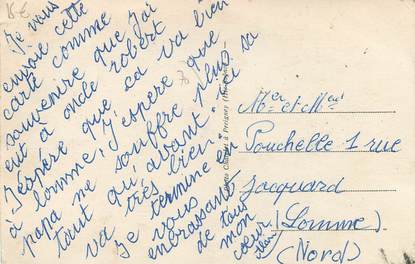 Je vous
envoie cette
carte comme
souvenire que j'ai
eut à oncle robert
J'éspère que sa va bien
à lomme, J'éspère que
papa ne souffre plus
tout qu'avant
va très bien
Je termine en
vous
enbrassant
de tous
mon
coeur
Mer et Meme
Pouchelle 1 rue
Jacquard
(Lomme)
(Nord)